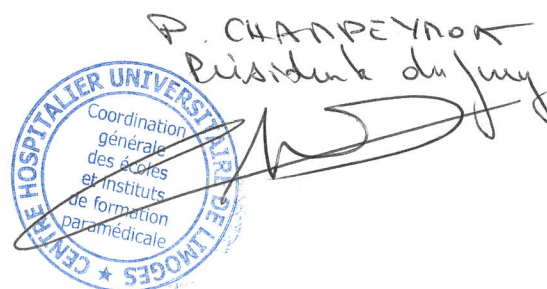 P. CHAMPEYMOK
Présidente du jury
CENTRE HOSPITALIER UNIVERSITAIRE DE LIMOGES
Coordination
générale
des écoles
et instituts
de formation
paramédicale